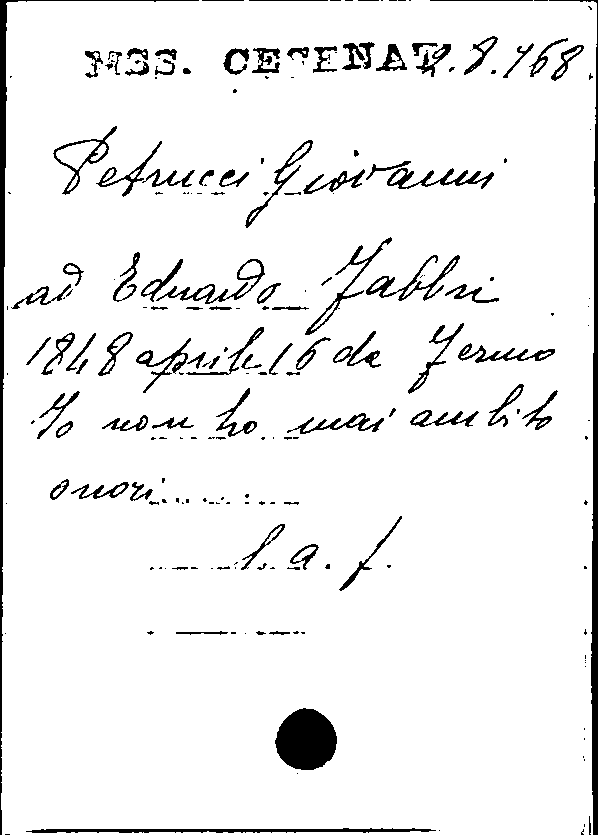 MSS. CESENAT. 2.8.168
Petrucci Giovanni
ad Eduardo Fabbri
1848 aprile 16 da Fermo
Io non ho mai ambito
onori........
l. a. f.